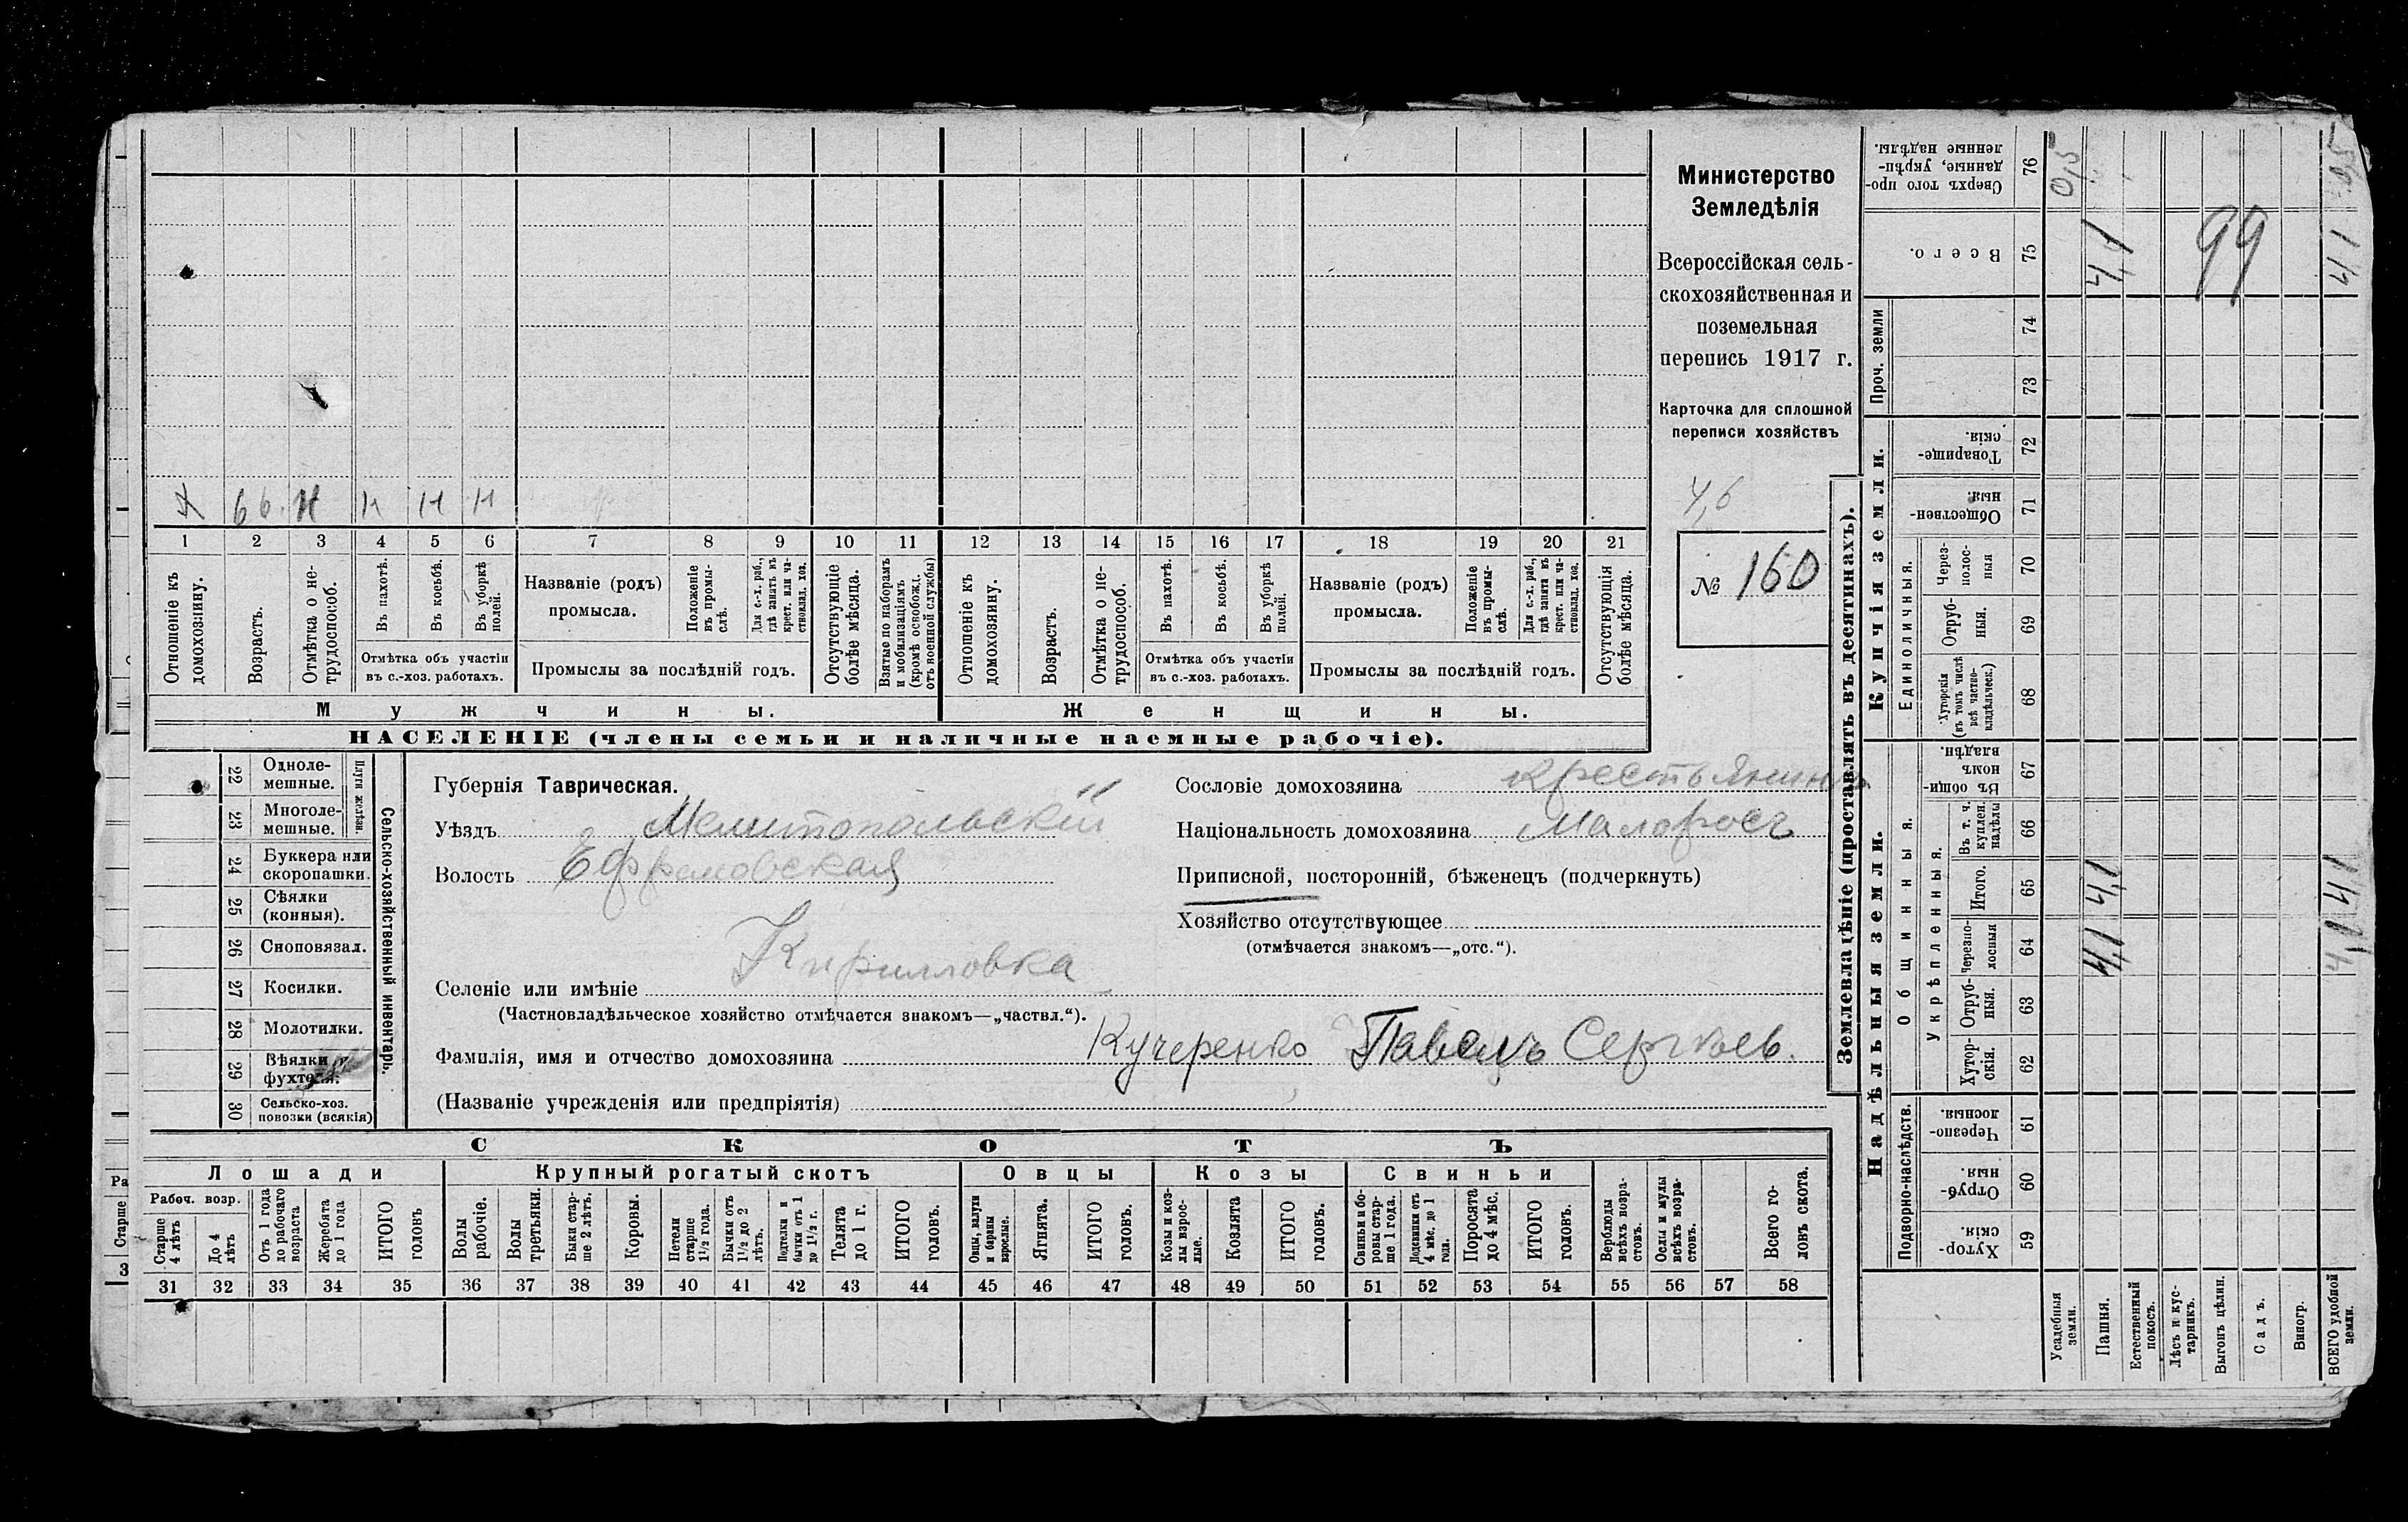 Х 66. Н Н Н Н
1 2 3 4 5 6 7 8 9 10 11 12 13 14 15 16 17 18 19 20 21
Отношеніе къ домохозяину.
Возрастъ.
Отмѣтка о не-трудоспособ.
Въ пахотѣ.
Въ косьбѣ.
Въ уборкѣ полей.
Отмѣтка объ участіи
въ с.-хоз. работахъ.
Названіе (родъ)
промысла.
Положеніе въ промы-слѣ.
Для с.-х. раб., гдѣ занятъ въ крест. или ча-стновлад. хоз.
Промыслы за послѣдній годъ.
Отсутствующіе болѣе мѣсяца.
Взятые по наборамъ и мобилизаціямъ (кромѣ освобожд. отъ военной службы)
Отношеніе къ домохозяину.
Возрастъ.
Отмѣтка о не-трудоспособ.
Въ пахотѣ.
Въ косьбѣ.
Въ уборкѣ полей.
Отмѣтка объ участіи
въ с.-хоз. работахъ.
Названіе (родъ)
промысла.
Положеніе въ промы-слѣ.
Для с.-х. раб., гдѣ занята въ крест. или ча-стновлад. хоз.
Промыслы за послѣдній годъ.
Отсутствующія болѣе мѣсяца.
Мужчины.
Женщины.
НАСЕЛЕНІЕ (члены семьи и наличные наемные рабочіе).
Министерство
Земледѣлія
Всероссійская сель-
скохозяйственная и
поземельная
перепись 1917 г.
Карточка для сплошной
переписи хозяйствъ
4,6
№ 160
22 Одноле-мешные.
23 Многоле-мешные.
Плуги желѣзн.
24 Буккера или скоропашки.
25 Сѣялки (конныя).
26 Сноповязал.
27 Косилки.
28 Молотилки.
29 Вѣялки
30 Сельско-хоз. повозки (всякія)
Сельско-хозяйственный инвентарь.
Губернія Таврическая.
Уѣздъ Мелитопольскій
Волость Ефремовская
Селеніе или имѣніе Кирилловка
(Частновладѣльческое хозяйство отмѣчается знакомъ—„частвл.“).
Фамилія, имя и отчество домохозяина Кучеренко Павелъ Сергѣев.
(Названіе учрежденія или предпріятія)
Сословіе домохозяина крестьянинъ
Національность домохозяина Малоросъ
Приписной, посторонній, бѣженецъ (подчеркнуть)
Хозяйство отсутствующее
(отмѣчается знакомъ—„отс.“).
СКОТЪ
Лошади
Крупный рогатый скотъ
Овцы
Козы
Свиньи
Рабоч. возр.
Старше 4 лѣтъ
До 4 лѣтъ
Отъ 1 года до рабочаго возраста
Жеребята до 1 года
ИТОГО головъ
Волы рабочіе.
Волы третьяки.
Быки стар-ше 2 лѣтъ.
Коровы.
Нетели старше 1½ года.
Бычки отъ 1½ до 2 лѣтъ.
Подтелки и бычки отъ 1 до 1½ г.
Телята до 1 г.
ИТОГО головъ.
Овцы, валухи и бараны взрослые.
Ягнята.
ИТОГО головъ.
Козы и коз-лы взрос-лые.
Козлята
ИТОГО головъ.
Свиньи и бо-ровы стар-ше 1 года.
Подсвинки отъ 4 мѣс. до 1 года.
Поросята до 4 мѣс.
ИТОГО головъ.
Верблюды всѣхъ возра-стовъ.
Ослы и мулы всѣхъ возра-стовъ.
Всего го-ловъ скота.
31 32 33 34 35 36 37 38 39 40 41 42 43 44 45 46 47 48 49 50 51 52 53 54 55 56 57 58
Землевладѣніе (проставлять въ десятинахъ).
Надѣльныя земли.
Купчія земли.
Проч. земли
Подворно-наслѣдств.
Общинныя.
Укрѣпленныя.
Единоличныя.
Хутор-скія. 59
Отруб-ныя. 60
Черезпо-лосныя. 61
Хутор-скія. 62
Отруб-ныя. 63
Черезпо-лосныя 64
Итого. 65
Въ т. ч. куплен. надѣлы 66
Въ общи-номъ владѣн. 67
Хуторскія (въ томъ числѣ всѣ частно-владѣльческ.) 68
Отруб-ныя. 69
Через-полос-ныя 70
Обществен-ныя 71
Товарище-скія. 72
73
74
Всего. 75
Сверхъ того про-данные, укрѣп-ленные надѣлы. 76
Усадебныя земли. 0,5
Пашня. 4,1 4,1 4,1
Естественный покосъ.
Лѣсъ и кус-тарникъ.
Выгонъ цѣлин. 99
Садъ.
Виногр.
ВСЕГО удобной земли. 4,1 4,1 4,1 0,5
Ра
Старше
3